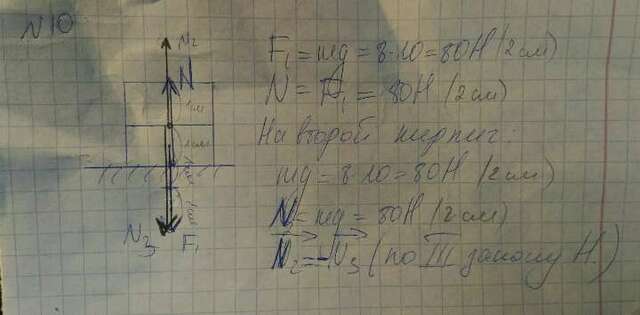 N10
N₂
N
1см
1см
1см
1см
N₃ F₁
F₁ = mg = 8·10 = 80Н (2см)
N = F₁ = 80Н (2см)
На второй кирпич:
mg = 8·10 = 80Н (2см)
N = mg = 80Н (2см)
N₂ = -N₃ (по III закону Н.)